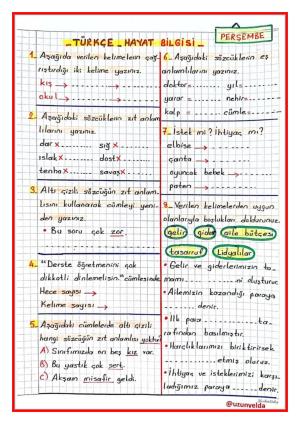 _ TÜRKÇE _ HAYAT BİLGİSİ _
PERŞEMBE
1_ Aşağıda verilen kelimelerin çağ-
rıştırdığı iki kelime yazınız.
kış → ............
okul → ............
2_ Aşağıdaki sözcüklerin zıt anlam-
lılarını yazınız.
dar x........ sığ x........
ıslak x........ dost x........
tenha x........ savaş x........
3_ Altı çizili sözcüğün zıt anlam-
lısını kullanarak cümleyi yeni-
den yazınız.
• Bu soru çok zor.
4_ "Derste öğretmenini çok
dikkatli dinlemelisin." cümlesinde
Hece sayısı →
Kelime sayısı →
5_ Aşağıdaki cümlelerde altı çizili
hangi sözcüğün zıt anlamlısı yoktur?
A) Sınıfımızda on beş kız var.
B) Bu yastık çok sert.
C) Akşam misafir geldi.
6_ Aşağıdaki sözcüklerin eş
anlamlılarını yazınız.
doktor=........ yıl=........
yarar=........ nehir=........
kalp=........ cümle=........
7_ İstek mi? İhtiyaç mı?
elbise →
çanta →
oyuncak bebek →
paten →
8_ Verilen kelimelerden uygun
olanlarıyla boşlukları doldurunuz.
gelir gider aile bütçesi
tasarruf Lidyalılar
• Gelir ve giderlerimizin ta-
mamı............ni oluşturur.
• Ailemizin kazandığı paraya
............ denir.
• İlk para ............ ta-
rafından basılmıştır.
• Harçlıklarımızı biriktirirsek
............ etmiş oluruz.
• İhtiyaç ve isteklerimizi karşı-
ladığımız paraya ........ denir.
@uzunyelda